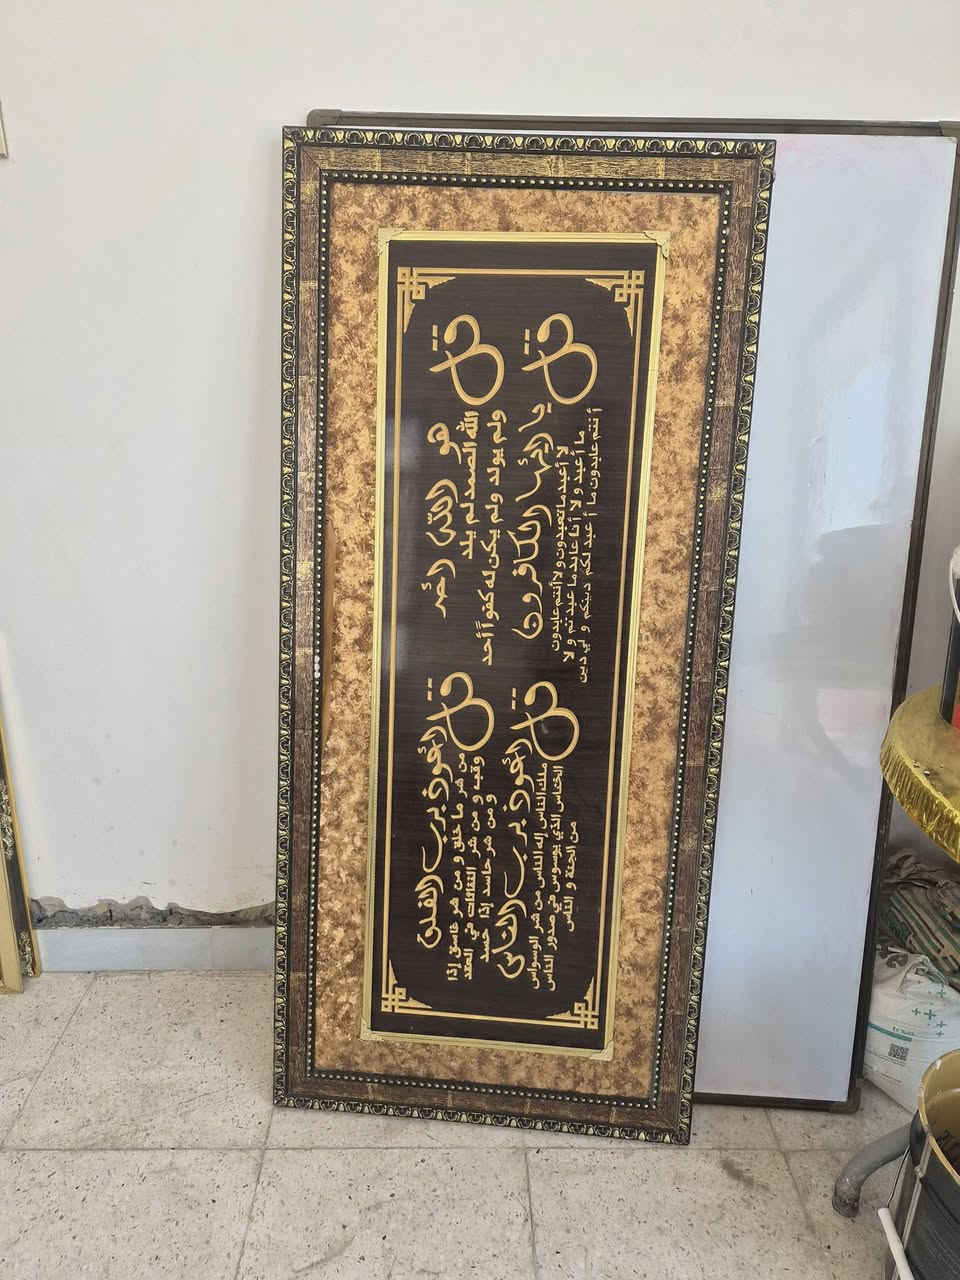 قل هو الله أحد
الله الصمد لم يلد
ولم يولد ولم يكن له كفواً أحد
قل أعوذ برب الفلق
من شر ما خلق و من شر غاسق إذا
وقب و من شر النفاثات في العقد
و من شر حاسد إذا حسد
قل يا أيها الكافرون
لا أعبد ما تعبدون ولا أنتم عابدون
ما أعبد و لا أنا عابد ما عبدتم و لا
أنتم عابدون ما أعبد لكم دينكم و لي دين
قل أعوذ برب الناس
ملك الناس إله الناس من شر الوسواس
الخناس الذي يوسوس في صدور الناس
من الجنة و الناس